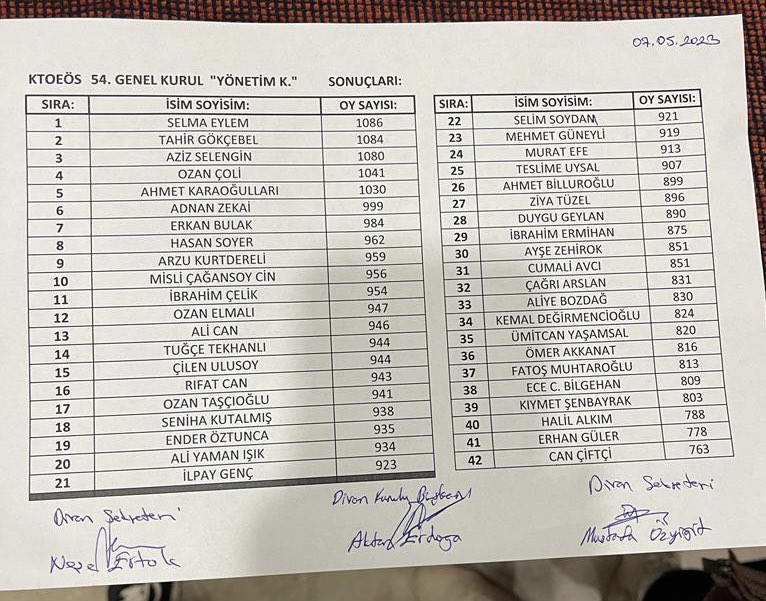 07.05.2023
KTOEÖS 54. GENEL KURUL "YÖNETİM K." SONUÇLARI:
SIRA: İSİM SOYİSİM: OY SAYISI:
1 SELMA EYLEM 1086
2 TAHİR GÖKÇEBEL 1084
3 AZİZ SELENGİN 1080
4 OZAN ÇOLİ 1041
5 AHMET KARAOĞULLARI 1030
6 ADNAN ZEKAİ 999
7 ERKAN BULAK 984
8 HASAN SOYER 962
9 ARZU KURTDERELİ 959
10 MİSLİ ÇAĞANSOY CİN 956
11 İBRAHİM ÇELİK 954
12 OZAN ELMALI 947
13 ALİ CAN 946
14 TUĞÇE TEKHANLI 944
15 ÇİLEN ULUSOY 944
16 RIFAT CAN 943
17 OZAN TAŞÇIOĞLU 941
18 SENİHA KUTALMIŞ 938
19 ENDER ÖZTUNCA 935
20 ALİ YAMAN IŞIK 934
21 İLPAY GENÇ 923
SIRA: İSİM SOYİSİM: OY SAYISI:
22 SELİM SOYDAN 921
23 MEHMET GÜNEYLİ 919
24 MURAT EFE 913
25 TESLİME UYSAL 907
26 AHMET BİLLUROĞLU 899
27 ZİYA TÜZEL 896
28 DUYGU GEYLAN 890
29 İBRAHİM ERMİHAN 875
30 AYŞE ZEHİROK 851
31 CUMALİ AVCI 851
32 ÇAĞRI ARSLAN 831
33 ALİYE BOZDAĞ 830
34 KEMAL DEĞİRMENCİOĞLU 824
35 ÜMİTCAN YAŞAMSAL 820
36 ÖMER AKKANAT 816
37 FATOŞ MUHTAROĞLU 813
38 ECE C. BİLGEHAN 809
39 KIYMET ŞENBAYRAK 803
40 HALİL ALKIM 788
41 ERHAN GÜLER 778
42 CAN ÇİFTÇİ 763
Divan Sekreteri
Divan Kurulu Başkanı
Erdoğa
Divan Sekreteri
Mustafa Özyiğit